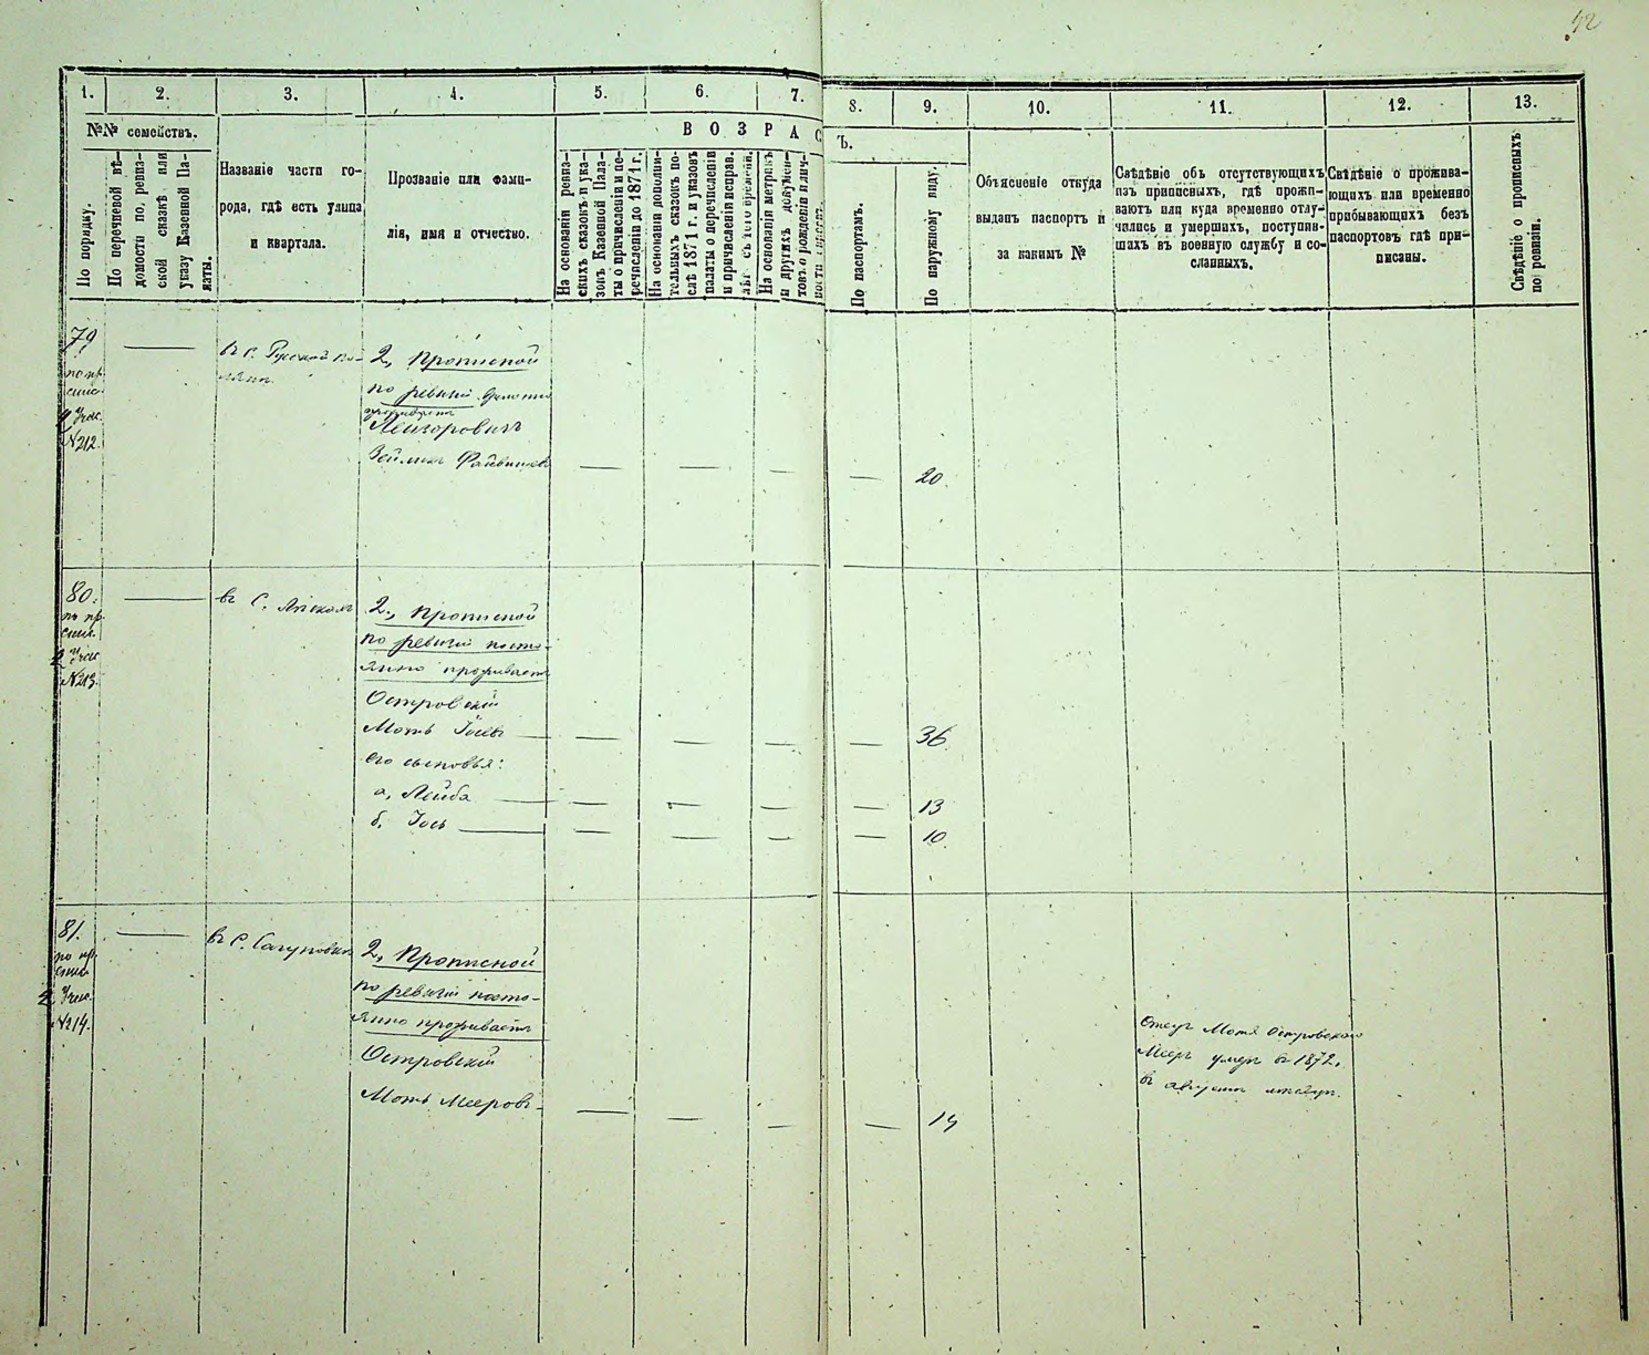 42
1.
2.
3.
4.
5.
6.
7.
8.
9.
10.
11.
12.
13.
№№ семействъ.
По порядку.
По перечневой вѣ-
домости по, ревиз-
ской сказкѣ или
указу Казенной Па-
латы.
Названіе части го-
рода, гдѣ есть улица
и квартала.
Прозваніе или фами-
лія, имя и отчество.
ВОЗРАС
Ъ.
На основаніи ревиз-
скихъ сказокъ и ука-
зовъ Казенной Пала-
ты о причисленіи и пе-
речисленіи до 1871 г.
На основаніи дополни-
тельныхъ сказокъ по-
слѣ 1871 г. и указовъ
палаты о перечисленіи
и причисленіи исправ.
съ того времени.
На основаніи метрикъ
и другихъ докумен-
товъ о рожденіи и лич-
По паспортамъ.
По наружному виду.
Объясненіе откуда
выданъ паспортъ и
за какимъ №
Свѣдѣніе объ отсутствующихъ
изъ приписныхъ, гдѣ прожи-
ваютъ или куда временно отлу-
чились и умершихъ, поступив-
шахъ въ военную службу и со-
сланныхъ.
Свѣдѣніе о прожива-
ющихъ или временно
прибывающихъ безъ
паспортовъ гдѣ при-
писаны.
Свѣдѣніе о прописныхъ
по ревизіи.
79
№212.
въ с. Русской По-
ляни.
2, Прописной
по ревизіи
Лейзоровичъ
20.
80.
№213.
въ С.
2., Прописной
по ревизіи посто-
янно проживаетъ
Островскій
Моть Іосевъ
36.
его сыновья:
а, Лейба
13
б. Іось
10.
81.
№214.
въ С. Сагуновки
2, Прописной
по ревизіи посто-
янно проживаетъ
Островскій
Моть Мееровъ
14
Отецъ Мотя Островскаго
Мееръ умеръ въ 1872.
въ августѣ мѣсяцѣ.